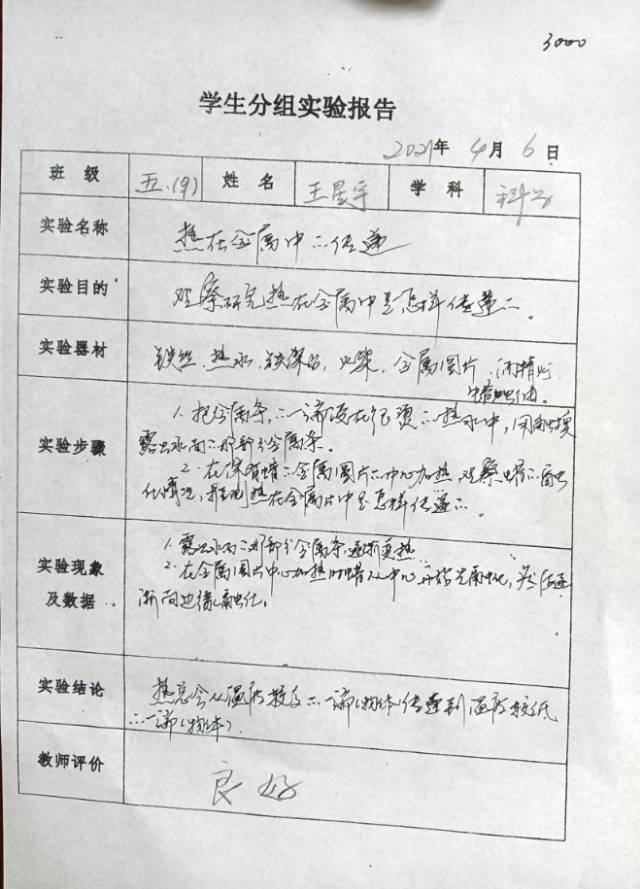 3000
学生分组实验报告
2021年 4月 6日
班 级 五.(9) 姓 名 王星宇 学 科 科学
实验名称 热在金属中的传递
实验目的 观察研究热在金属中是怎样传递的。
实验器材 铁丝、热水、铁架台、火柴、金属圆片、酒精灯、
实验步骤 1.把金属条的一端浸在很烫的热水中,用手触摸
露出水面的那部分金属条。
2.在保有蜡的金属圆片的中心加热,观察蜡的融
化情况,推测热在金属片中是怎样传递的。
实验现象及数据 1.露出水面的那部分金属条,逐渐变热
2.在金属圆片中心加热时蜡从中心开始先融化,然后逐
渐向边缘融化。
实验结论 热总会从温度较高的一端(物体)传递到温度较低
的一端(物体)。
教师评价 良好